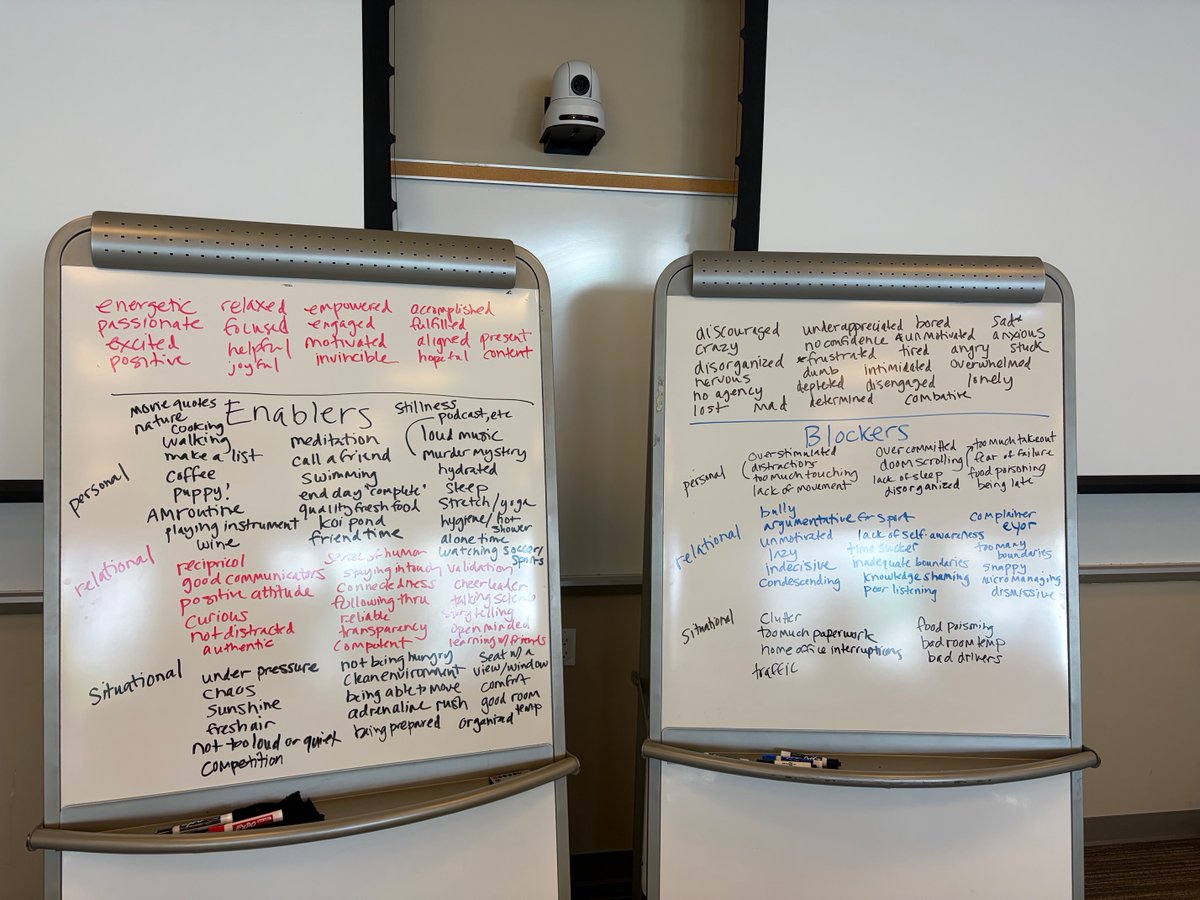 energetic relaxed empowered accomplished
passionate focused engaged fulfilled
excited helpful motivated aligned present
positive joyful invincible hopeful content
Enablers
personal
movie quotes
nature
cooking
walking
make a list
coffee
puppy!
AM routine
playing instrument
wine
meditation
call a friend
swimming
end day "complete"
quality fresh food
koi pond
friend time
stillness
podcast, etc
loud music
murder mystery
hydrated
sleep
stretch/yoga
hygiene/hot shower
alone time
watching soccer/sports
relational
recipricol
good communicators
positive attitude
curious
not distracted
authentic
sense of humor
staying in touch
connectedness
following thru
reliable
transparency
competent
validation
cheerleader
talking
storytelling
open minded
learning w/friends
Situational
under pressure
chaos
sunshine
fresh air
not too loud or quiet
competition
not being hungry
clean environment
being able to move
adrenaline rush
being prepared
seat w/ a view/window
comfort
good room temp
organized
discouraged underappreciated bored sad*
crazy no confidence unmotivated anxious
disorganized *frustrated tired angry stuck
nervous dumb intimidated overwhelmed
no agency depleted disengaged lonely
lost mad determined combative
Blockers
personal
overstimulated
distractions
too much touching
lack of movement
over committed
doom scrolling
lack of sleep
disorganized
too much takeout
fear of failure
food poisoning
being late
relational
bully
argumentative for sport
unmotivated
lazy
indecisive
condescending
lack of self-awareness
time sucker
inadequate boundaries
knowledge shaming
poor listening
complainer
eyor
too many boundaries
snappy
micromanaging
dismissive
Situational
clutter
too much paperwork
home office interruptions
traffic
food poisning
bad room temp
bad drivers
EXPO